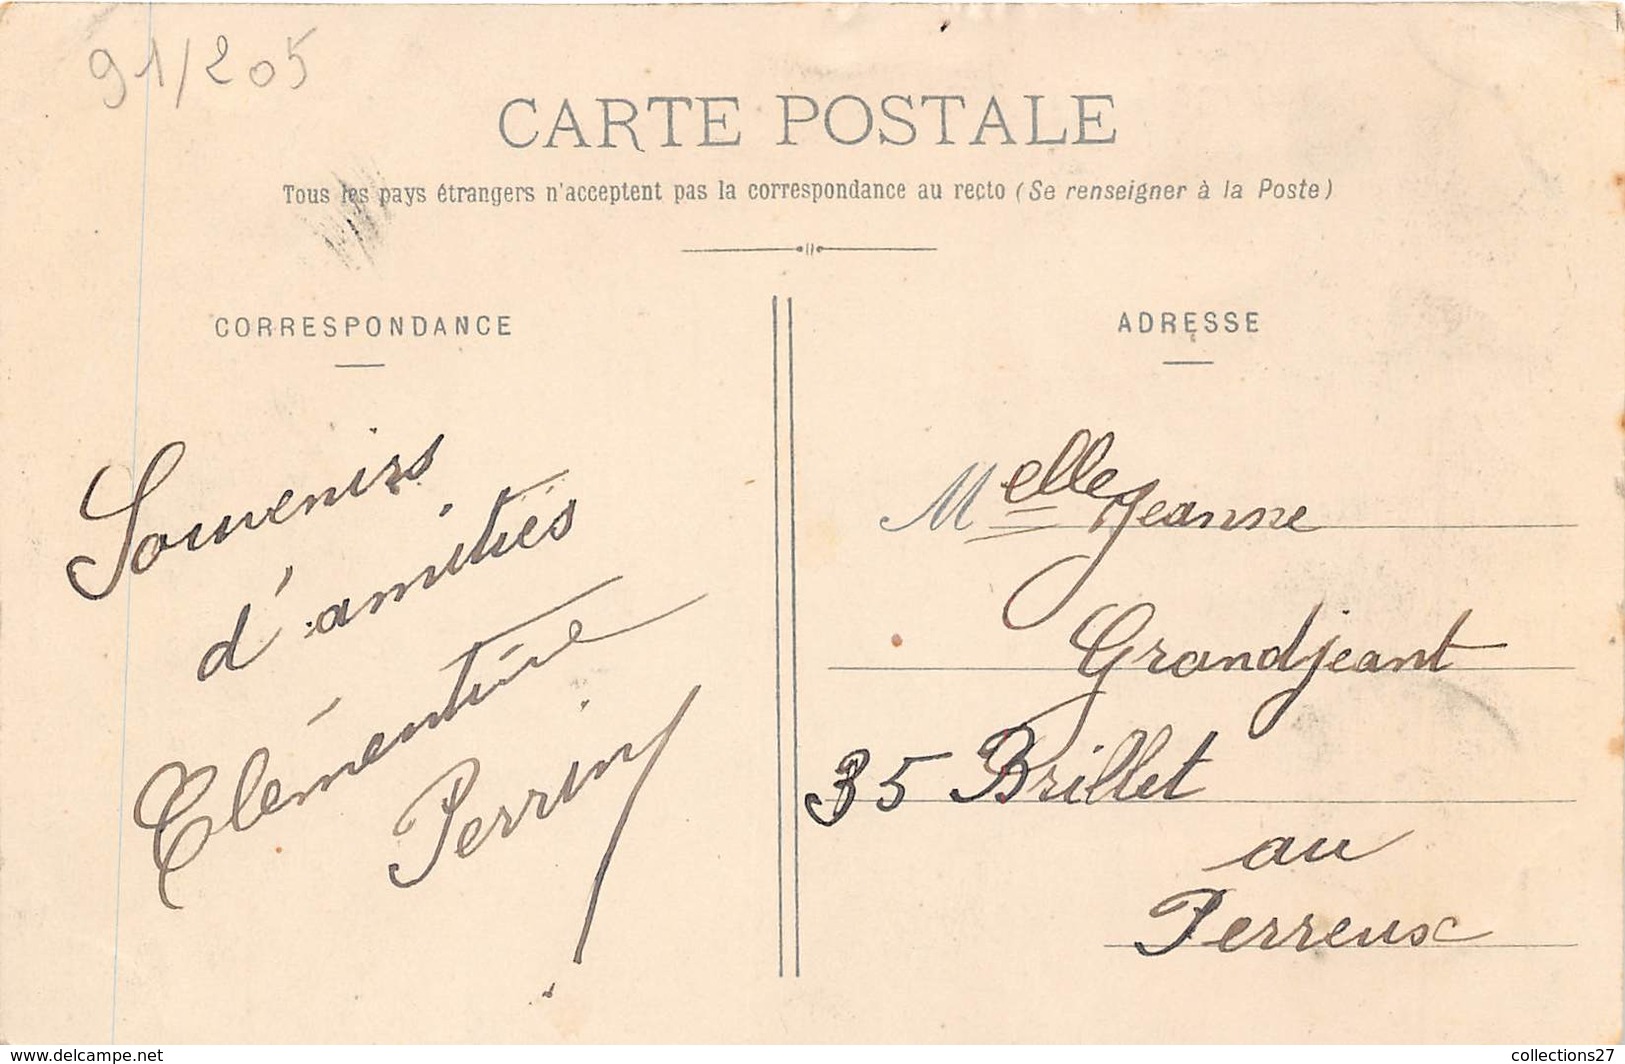 91/205
CARTE POSTALE
Tous les pays étrangers n'acceptent pas la correspondance au recto (Se renseigner à la Poste)
CORRESPONDANCE
Souvenirs
d'amitiés
Clémentine
Perrin
ADRESSE
Melle Jeanne
Grandjeant
35 Brillet
au
Perreux
www.delcampe.net
collections27